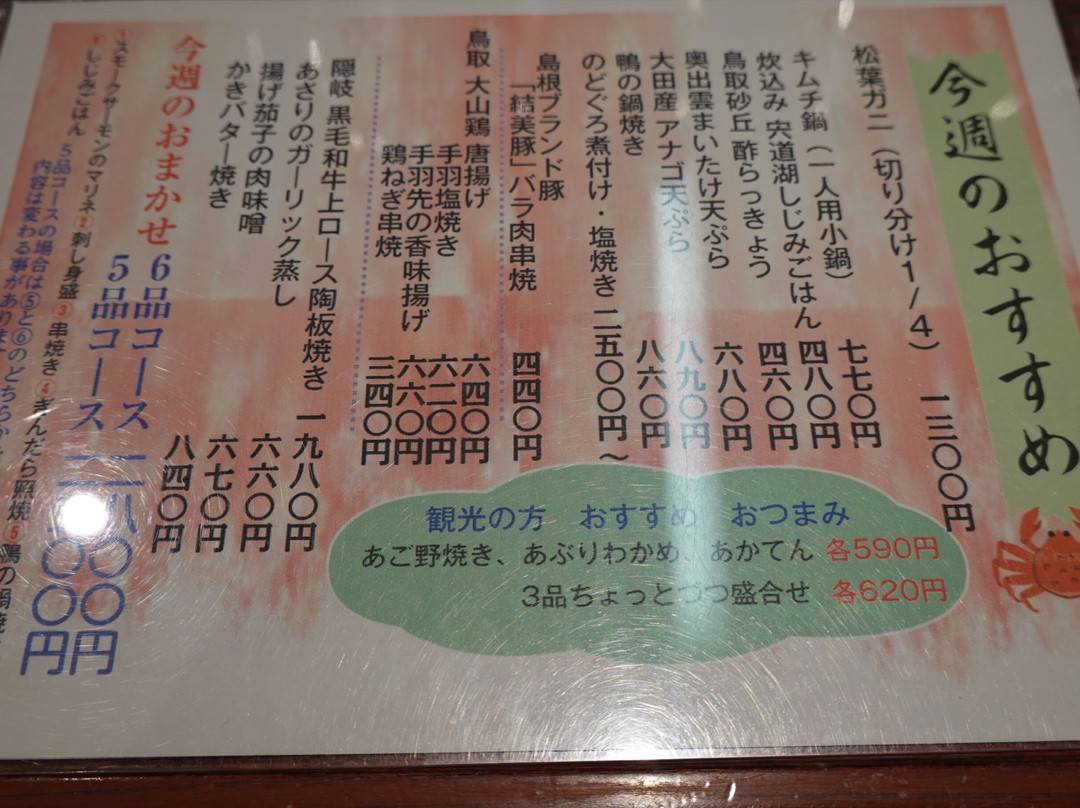 今週のおすすめ
松葉ガニ（切り分け1/4） 一三〇〇円
キムチ鍋（一人用小鍋） 七七〇円
炊込み 宍道湖しじみごはん 四八〇円
鳥取砂丘 酢らっきょう 四六〇円
奥出雲まいたけ天ぷら 六八〇円
大田産 アナゴ天ぷら 八九〇円
鴨の鍋焼き 八六〇円
のどぐろ煮付け・塩焼き 二五〇〇円〜
島根ブランド豚
「結美豚」バラ肉串焼 四四〇円
鳥取 大山鶏 唐揚げ 六四〇円
手羽塩焼き 六二〇円
手羽先の香味揚げ 六六〇円
鶏ねぎ串焼 三四〇円
隠岐 黒毛和牛上ロース陶板焼き 一九八〇円
あさりのガーリック蒸し 六六〇円
揚げ茄子の肉味噌 六七〇円
かきバター焼き 八四〇円
観光の方 おすすめ おつまみ
あご野焼き、あぶりわかめ、あかてん 各590円
3品ちょっとづつ盛合せ 各620円
今週のおまかせ
6品コース
5品コース
①スモークサーモンのマリネ②刺し身盛③串焼き④ぎんだら照焼⑤鴨の鍋焼
⑥しじみごはん
5品コースの場合は⑤と⑥のどちらか
内容は変わる事があります